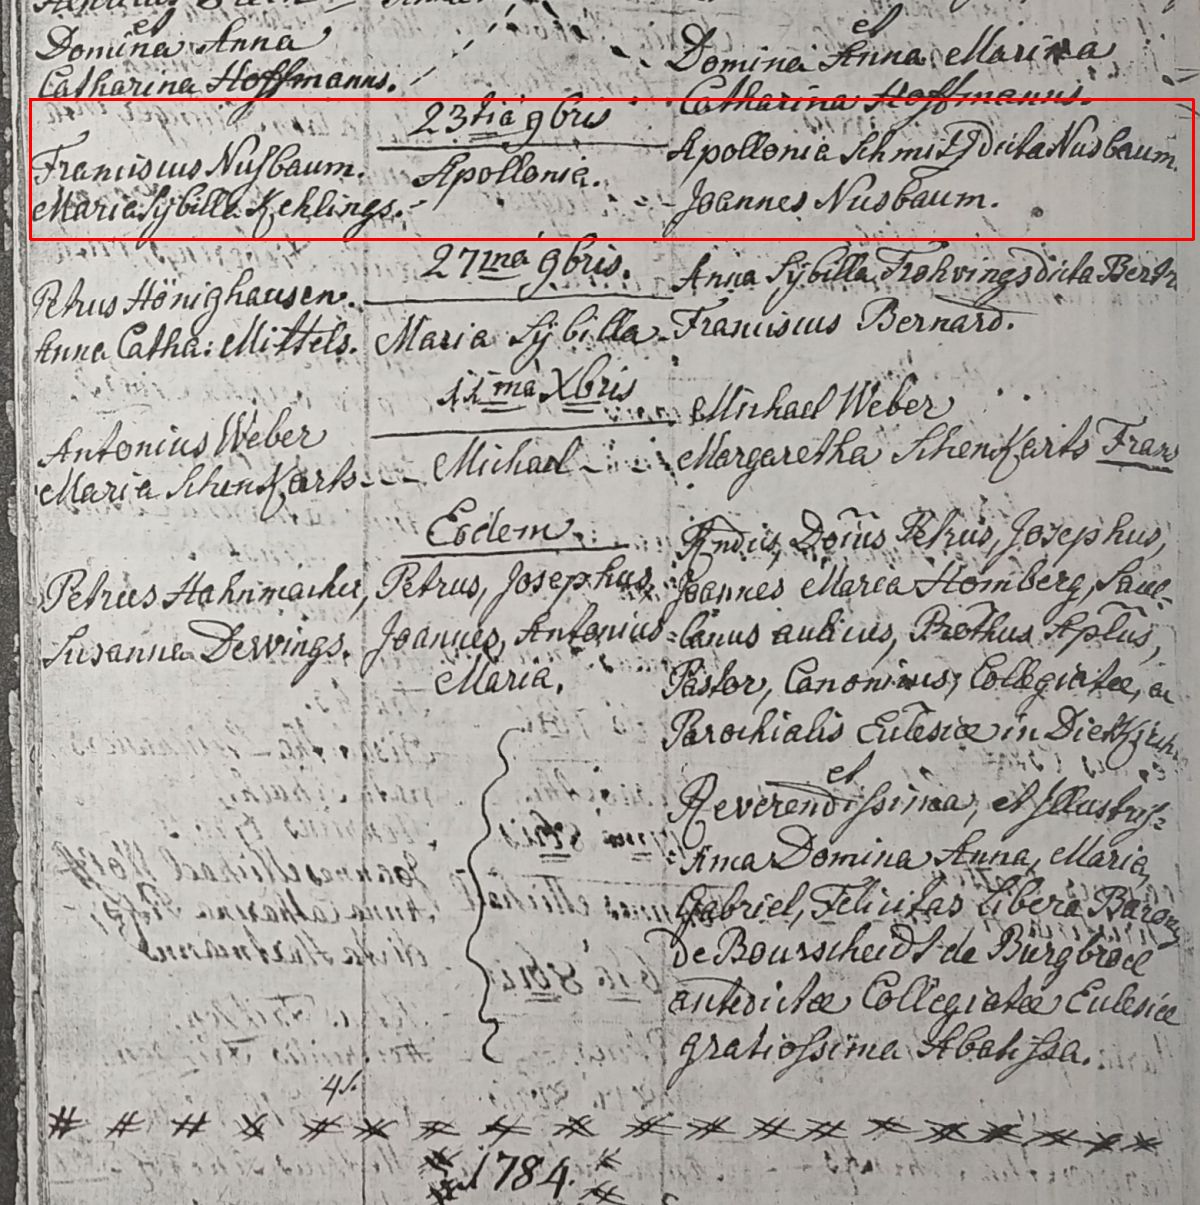 et
Domina Anna
Catharina Hoffmanns.
et
Domina Anna Maria
Catharina Hoffmanns.
23tia 9bris
Franciscus Nusbaum.
Maria Sÿbilla Kehlings.
Apollonia.
Apollonia Schmitz dicta Nusbaum.
Joannes Nusbaum.
27ma 9bris.
Petrus Hönighausen.
Anna Catha: Mittels.
Maria Sÿbilla
Anna Sÿbilla Frohvings dicta
Franciscus Bernard.
11ma Xbris
Antonius Weber
Maria Schenkarts
Michael
Michael Weber
Margaretha Schenkarts
Eodem.
Petrus Hahnmacher,
Susanna Dewings.
Petrus, Josephus,
Joannes, Antonius
Maria.
Dom̃us Petrus, Josephus,
Joannes Maria Homberg, Sacel-
lanus aulicus, Proth̃us Apl̃us,
Pastor, Canonicus, Collegiatæ, ac
Parochialis Ecclesiæ in
et
Reverendissima, et Illustris-
sima Domina Anna, Maria,
Gabriel, Felicitas Libera
de Bourscheidt de Burgbroel
antedictæ Collegiatæ Ecclesiæ
gratiosissima Abatissa.
1784.